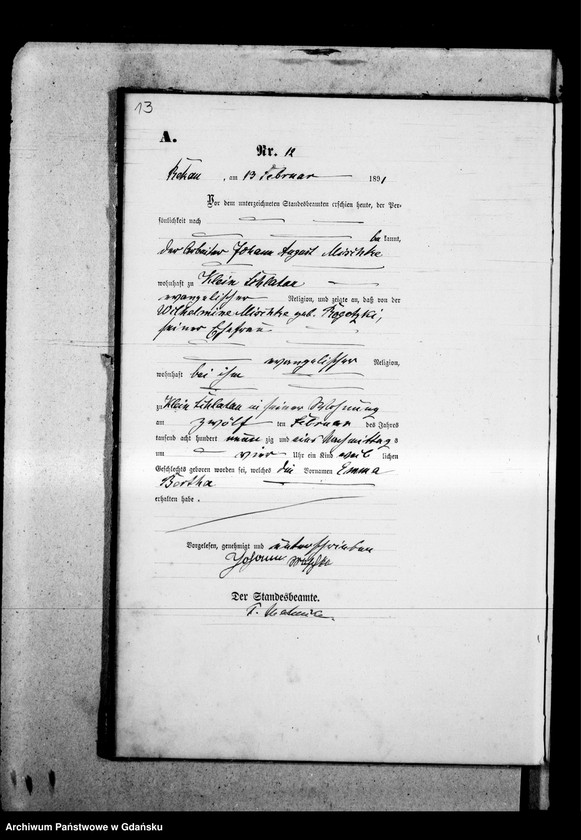 13
A.
Nr. 12
am 13 Februar 1891
Vor dem unterzeichneten Standesbeamten erschien heute, der Per-
sönlichkeit nach
be kannt,
der Arbeiter Johann August Mischke
wohnhaft zu Klein
evangelischer Religion, und zeigte an, daß von der
Wilhelmine Mischke geb.
seiner Ehefrau
evangelischer Religion,
wohnhaft bei ihm
zu Klein in seiner Wohnung
am zwölf ten Februar des Jahres
tausend acht hundert neun zig und eins Nachmittag s
um vier Uhr ein Kind weib lichen
Geschlechts geboren worden sei, welches die Vornamen Emma
Bertha
erhalten habe.
Vorgelesen, genehmigt und unterschrieben
Johann
Der Standesbeamte.
Archiwum Państwowe w Gdańsku